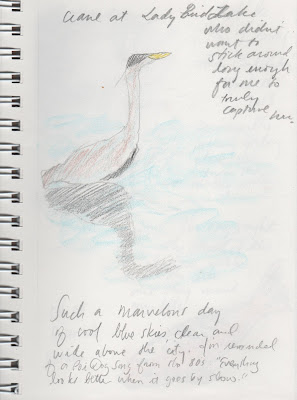 Crane at Lady Bird Lake
who didn't
want to
stick around
long enough
for me to
truly
capture her.
Such a marvelous day
of cool blue skies, clear and
wide above the city. I'm reminded
of a Poi Dog song from the 80s: "Everything
looks better when it goes by slow."